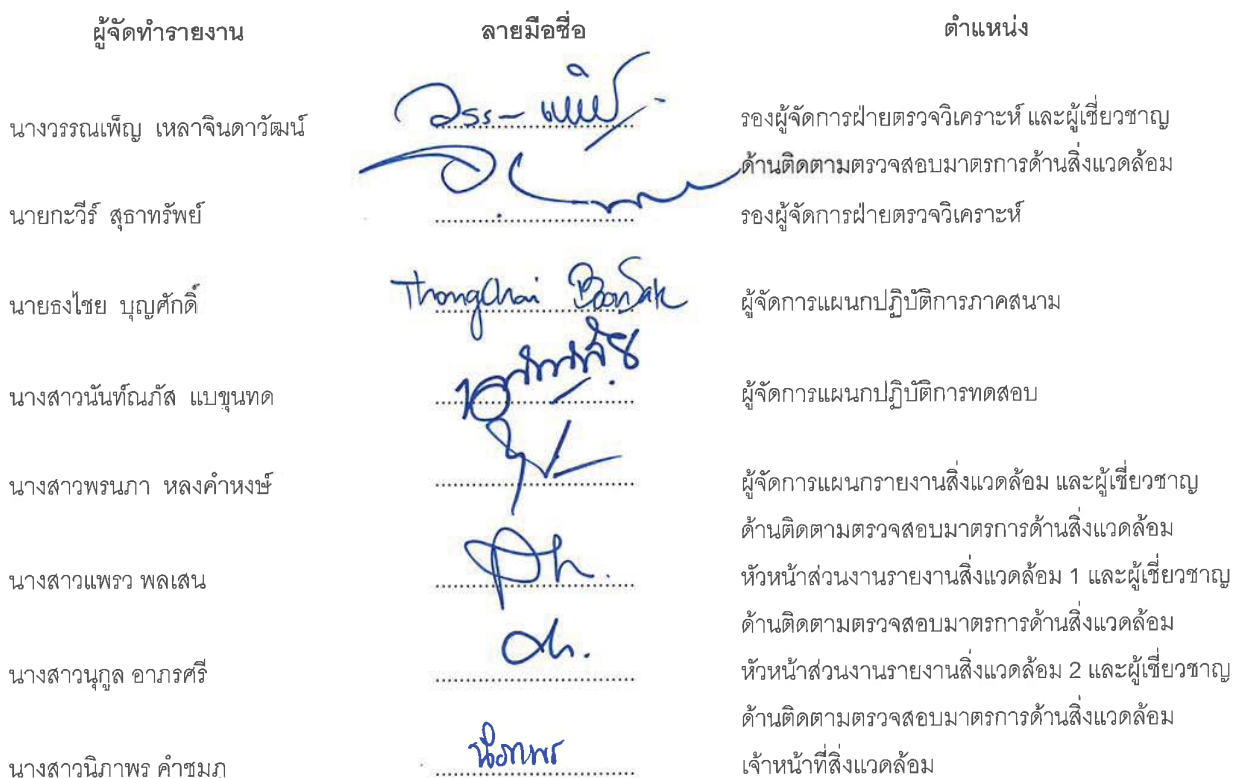 ผู้จัดทำรายงาน ลายมือชื่อ ตำแหน่ง
นางวรรณเพ็ญ เหลาจินดาวัฒน์ รองผู้จัดการฝ่ายตรวจวิเคราะห์ และผู้เชี่ยวชาญ
ด้านติดตามตรวจสอบมาตรการด้านสิ่งแวดล้อม
นายกะวีร์ สุธาทรัพย์ รองผู้จัดการฝ่ายตรวจวิเคราะห์
นายธงไชย บุญศักดิ์ ThongChai BoonSak ผู้จัดการแผนกปฏิบัติการภาคสนาม
นางสาวนันท์ณภัส แบขุนทด ผู้จัดการแผนกปฏิบัติการทดสอบ
นางสาวพรนภา หลงคำหงษ์ ผู้จัดการแผนกรายงานสิ่งแวดล้อม และผู้เชี่ยวชาญ
ด้านติดตามตรวจสอบมาตรการด้านสิ่งแวดล้อม
นางสาวแพรว พลเสน หัวหน้าส่วนงานรายงานสิ่งแวดล้อม 1 และผู้เชี่ยวชาญ
ด้านติดตามตรวจสอบมาตรการด้านสิ่งแวดล้อม
นางสาวนุกูล อาภรศรี หัวหน้าส่วนงานรายงานสิ่งแวดล้อม 2 และผู้เชี่ยวชาญ
ด้านติดตามตรวจสอบมาตรการด้านสิ่งแวดล้อม
นางสาวนิภาพร คำชมภู นิภาพร เจ้าหน้าที่สิ่งแวดล้อม